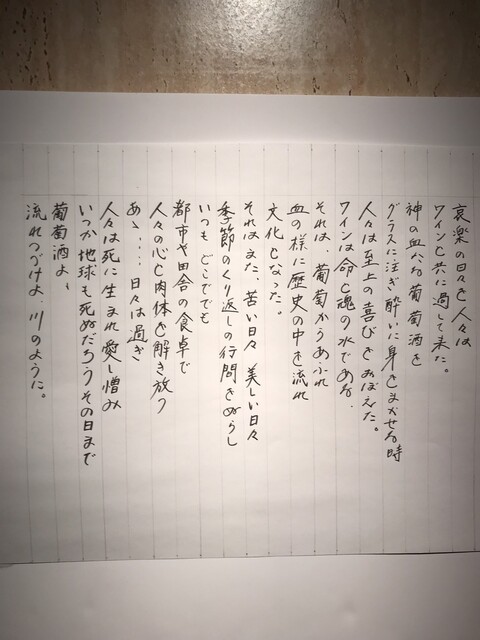 哀楽の日々を人々は
ワインと共に過して来た。
神の血なる葡萄酒を
グラスに注ぎ酔いに身をまかせる時
人々は至上の喜びをおぼえた。
ワインは命と魂の水である。
それは、葡萄からあふれ
血の様に歴史の中を流れ
文化となった。
それはまた、苦い日々 美しい日々
季節のくり返しの行間をぬらし
いつも どこででも
都市や田舎の食卓で
人々の心と肉体を解き放つ
あゝ‥‥ 日々は過ぎ
人々は死に生まれ愛し憎み
いつか地球も死ぬだろうその日まで
葡萄酒よ、
流れつづけよ、川のように。